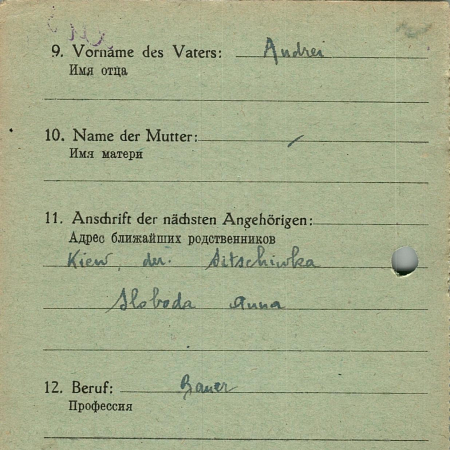 9. Vorname des Vaters: Andrei
Имя отца
10. Name der Mutter: /
Имя матери
11. Anschrift der nächsten Angehörigen:
Адрес ближайших родственников
Kiew, der. Sitschiwka
Sloboda Anna
12. Beruf: Bauer
Профессия